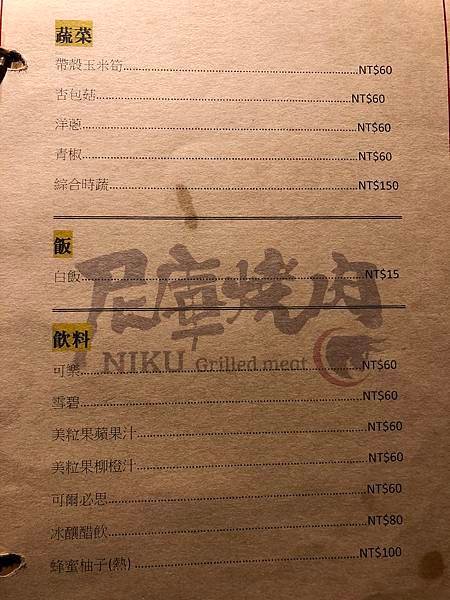 蔬菜
帶殼玉米筍 NT$60
杏包菇 NT$60
洋蔥 NT$60
青椒 NT$60
綜合時蔬 NT$150
飯
白飯 NT$15
尼庫燒肉
NIKU Grilled meat
飲料
可樂 NT$60
雪碧 NT$60
美粒果蘋果汁 NT$60
美粒果柳橙汁 NT$60
可爾必思 NT$60
冰釀醋飲 NT$80
蜂蜜柚子(熱) NT$100